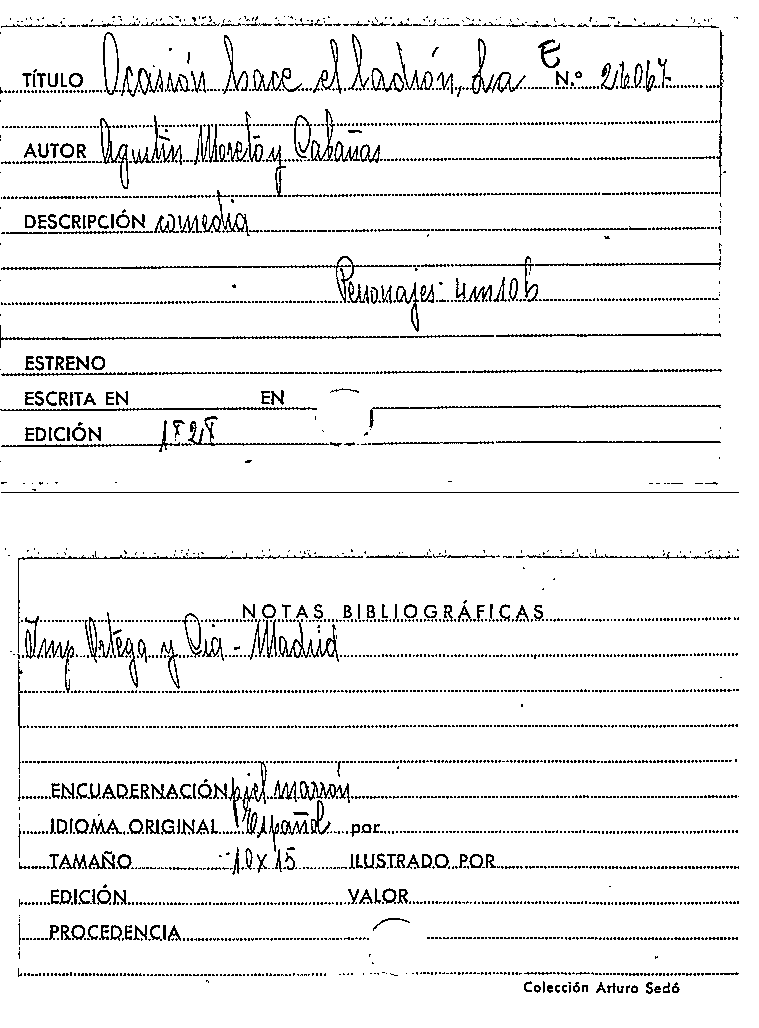 TÍTULO Ocasión hace el ladrón, La E N.º 26067
AUTOR Agustín Moreto y Cabañas
DESCRIPCIÓN comedia
Personajes: 4m10h
ESTRENO
ESCRITA EN EN
EDICIÓN 1828
NOTAS BIBLIOGRÁFICAS
Imp Ortega y Cia - Madrid
ENCUADERNACIÓN piel marrón
IDIOMA ORIGINAL Español por
TAMAÑO 10x15 ILUSTRADO POR
EDICIÓN VALOR
PROCEDENCIA
Colección Arturo Sedó